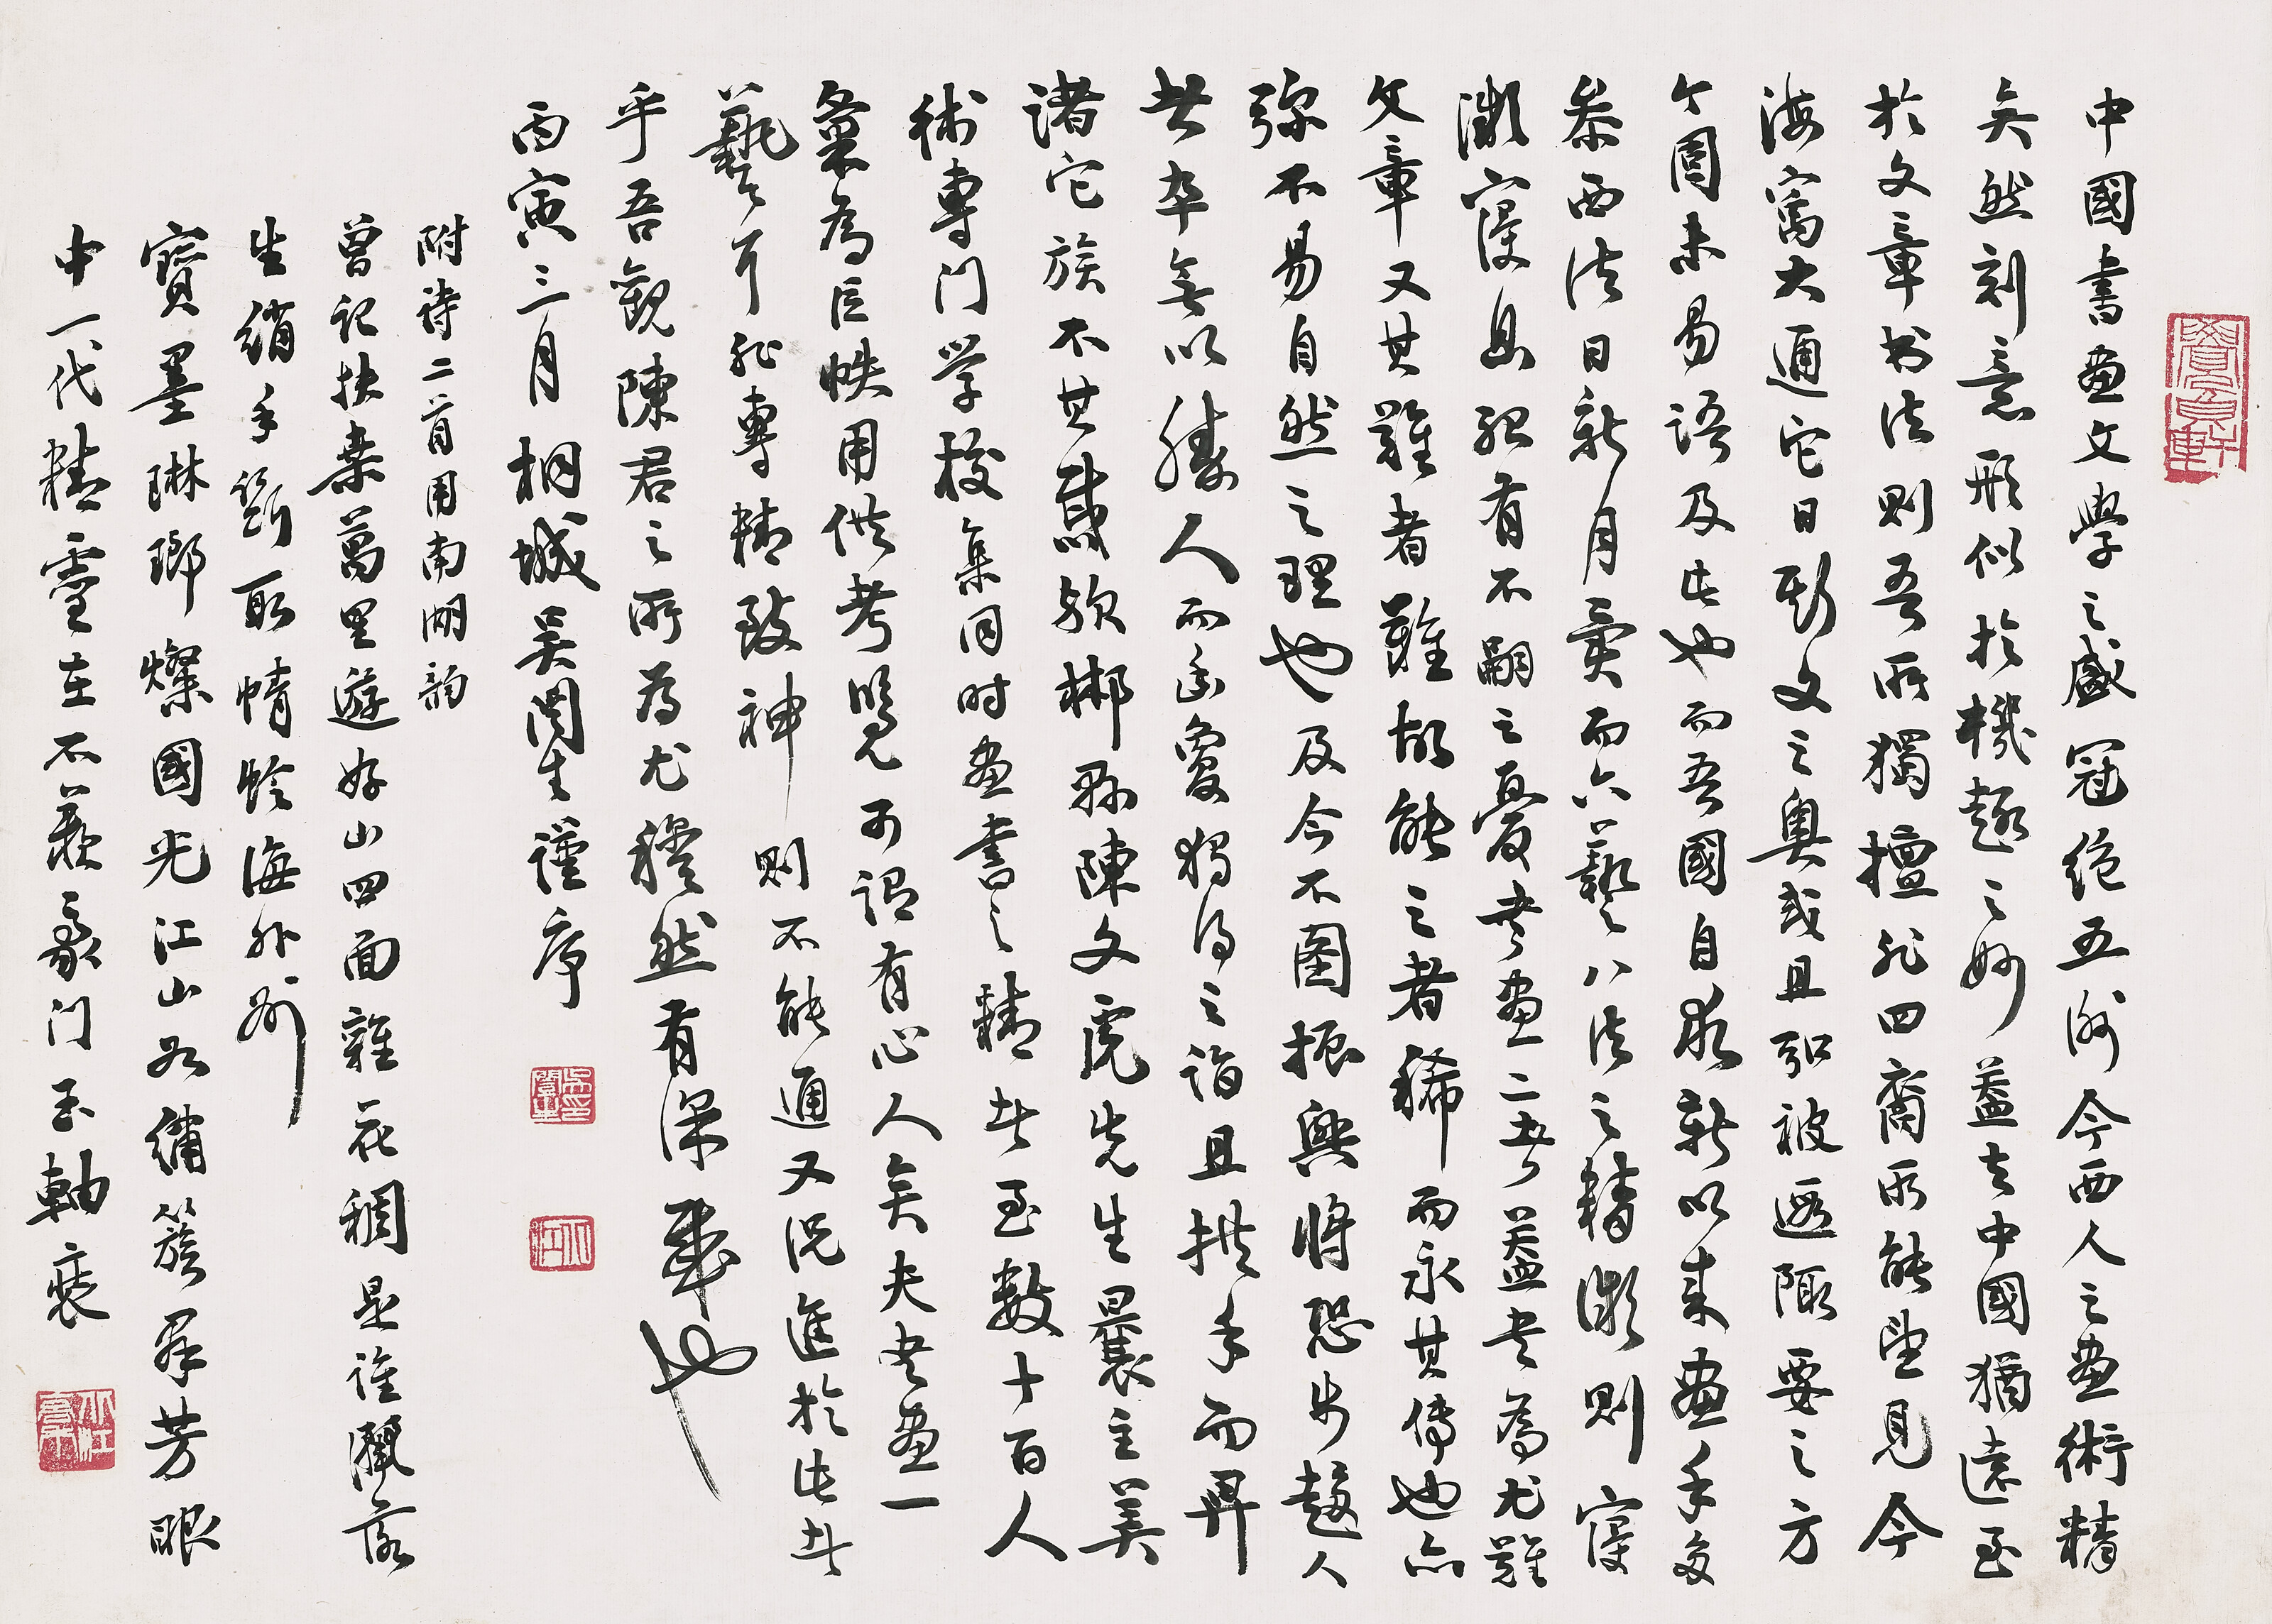 中國書畫文學之盛冠絕五洲今西人之畫術精
矣然刻意形似於機趣之妙蓋去中國猶遠至
於文章书法则吾所獨擅非四裔所能望見今
海寓大通它日斯文之奧或且弘被遐陬要之方
今固未易語及此也而吾國自求新以来畫手多
叅西法日新月異而六藝八法之精微則寖
微寖息殆有不嗣之憂書畫二者蓋書為尤難
文章又其難者難故能之者稀而永其傳也亦
弥不易自然之理也及今不圖振興將恐步趨人
者卒無以勝人而吾夐獨得之詣且拱手而畀
諸它族不其慼歟郴縣陳文虎先生曩主美
術專门学校集同时畫書之精者至數十百人
彙為巨帙用供考覽可謂有心人矣夫書畫一
藝耳非專精致神則不能通又况進於此者
乎吾觀陳君之所为尤穆然有深感也
丙寅三月桐城吴闓生謹序
附诗二首用南湖韵
曾記扶桒萬里遊好山四面雜花稠是谁
生綃手新取情怜海外州
寶墨琳瑯燦國光江山如繡簇群芳眼
中一代精靈在不羨豪门玉軸裝